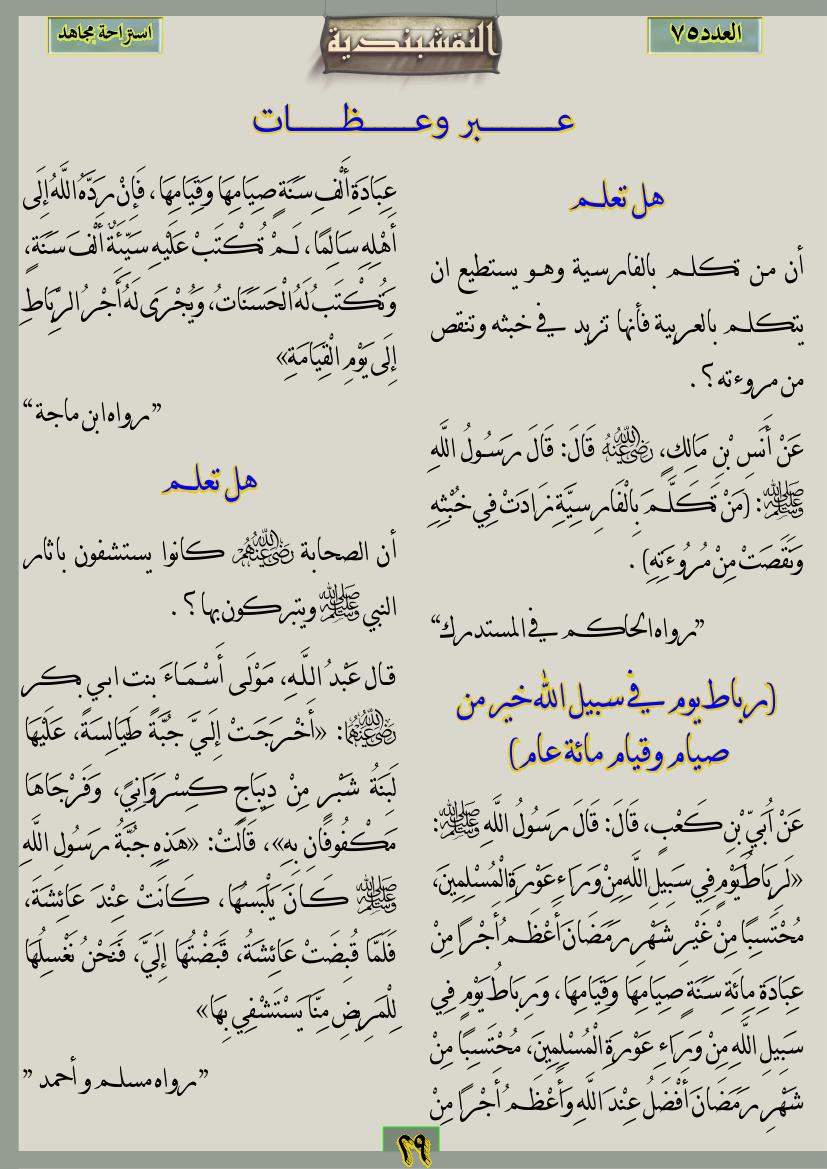 العدد ٧٥
النقشبندية
استراحة مجاهد
عـــبر وعـــظـــات
هل تعلم
أن من تكلم بالفارسية وهو يستطيع ان
يتكلم بالعربية فأنها تزيد في خبثه وتنقص
من مروءته؟ .
عَنْ أَنَسِ بْنِ مَالِكٍ، رَضِيَ اللَّهُ عَنْهُ قَالَ: قَالَ رَسُولُ اللَّهِ
ﷺ: (مَنْ تَكَلَّمَ بِالْفَارِسِيَّةِ زَادَتْ فِي خُبْثِهِ
وَنَقَصَتْ مِنْ مُرُوءَتِهِ) .
”رواه الحاكم في المستدرك“
(رباط يوم في سبيل الله خير من
صيام وقيام مائة عام)
عَنْ أُبَيِّ بْنِ كَعْبٍ، قَالَ: قَالَ رَسُولُ اللَّهِ ﷺ:
«لَرِبَاطُ يَوْمٍ فِي سَبِيلِ اللَّهِ مِنْ وَرَاءِ عَوْرَةِ الْمُسْلِمِينَ،
مُحْتَسِبًا مِنْ غَيْرِ شَهْرِ رَمَضَانَ أَعْظَمُ أَجْرًا مِنْ
عِبَادَةِ مِائَةِ سَنَةٍ صِيَامِهَا وَقِيَامِهَا، وَرِبَاطُ يَوْمٍ فِي
سَبِيلِ اللَّهِ مِنْ وَرَاءِ عَوْرَةِ الْمُسْلِمِينَ، مُحْتَسِبًا مِنْ
شَهْرِ رَمَضَانَ أَفْضَلُ عِنْدَ اللَّهِ وَأَعْظَمُ أَجْرًا مِنْ
عِبَادَةِ أَلْفِ سَنَةٍ صِيَامِهَا وَقِيَامِهَا، فَإِنْ رَدَّهُ اللَّهُ إِلَى
أَهْلِهِ سَالِمًا، لَمْ تُكْتَبْ عَلَيْهِ سَيِّئَةٌ أَلْفَ سَنَةٍ،
وَتُكْتَبُ لَهُ الْحَسَنَاتُ، وَيُجْرَى لَهُ أَجْرُ الرِّبَاطِ
إِلَى يَوْمِ الْقِيَامَةِ»
”رواه ابن ماجة“
هل تعلم
أن الصحابة رَضِيَ اللَّهُ عَنْهُمْ كانوا يستشفون باثار
النبي ﷺ ويتبركون بها؟ .
قال عَبْدُ اللَّهِ، مَوْلَى أَسْمَاءَ بنت ابي بكر
رَضِيَ اللَّهُ عَنْهُمَا: «أَخْرَجَتْ إِلَيَّ جُبَّةً طَيَالِسَةً، عَلَيْهَا
لَبِنَةُ شَبْرٍ مِنْ دِيبَاجٍ كِسْرَوَانِيٍّ، وَفَرْجَاهَا
مَكْفُوفَانِ بِهِ»، قَالَتْ: «هَذِهِ جُبَّةُ رَسُولِ اللَّهِ
ﷺ كَانَ يَلْبَسُهَا، كَانَتْ عِنْدَ عَائِشَةَ،
فَلَمَّا قُبِضَتْ عَائِشَةُ، قَبَضْتُهَا إِلَيَّ، فَنَحْنُ نَغْسِلُهَا
لِلْمَرِيضِ مِنَّا يَسْتَشْفِي بِهَا»
”رواه مسلم و أحمد ”
٢٩